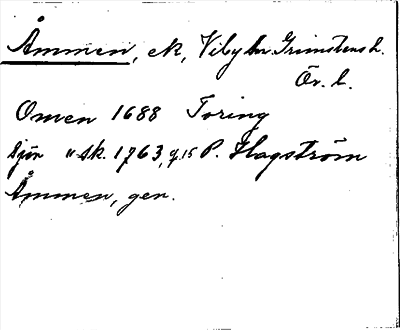 Åmmen, ek, Viby sn Grimstens h.
Ör. l.
Omen 1688 Toring
Sjön "sk. 1763, q.15 P. Hagström
Åmmen, gen.